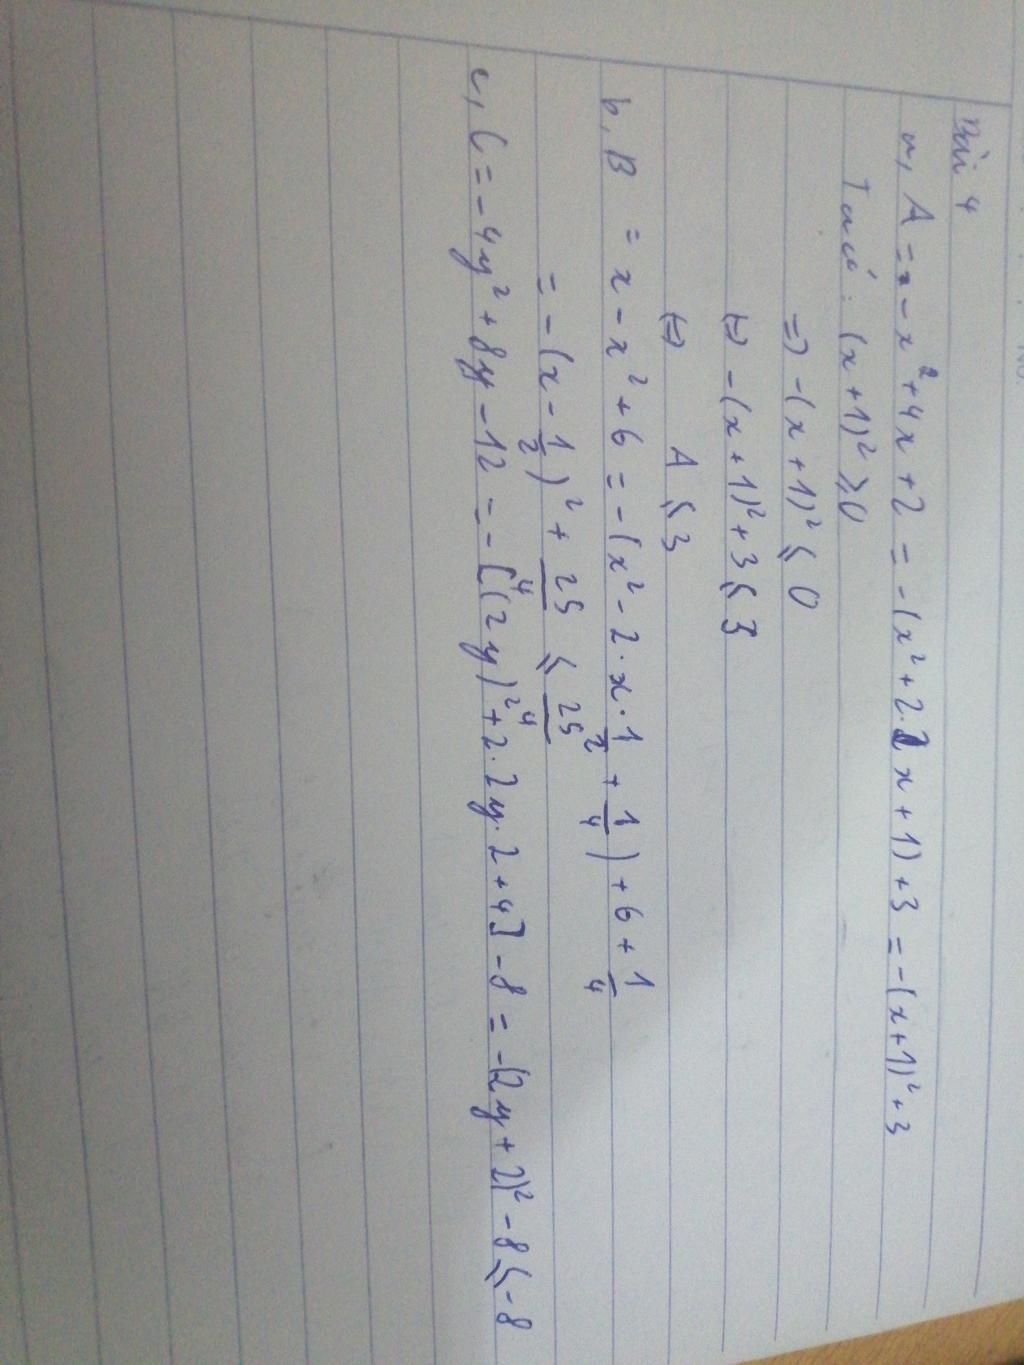 Bài 4
a, A = - x² + 4x + 2 = -(x² + 2.1x + 1) + 3 = -(x+1)² + 3
Ta có : (x + 1)² ⩾ 0
=> -(x + 1)² ⩽ 0
(=) -(x + 1)² + 3 ⩽ 3
(=) A ⩽ 3
b, B = x - x² + 6 = -(x² - 2.x.1/2 + 1/4) + 6 + 1/4
= -(x - 1/2)² + 25/4 ⩽ 25/4
c, C = - 4y² + 8y - 12 = -[(2y)² + 2.2y.2 + 4] - 8 = -(2y + 2)² - 8 ⩽ -8